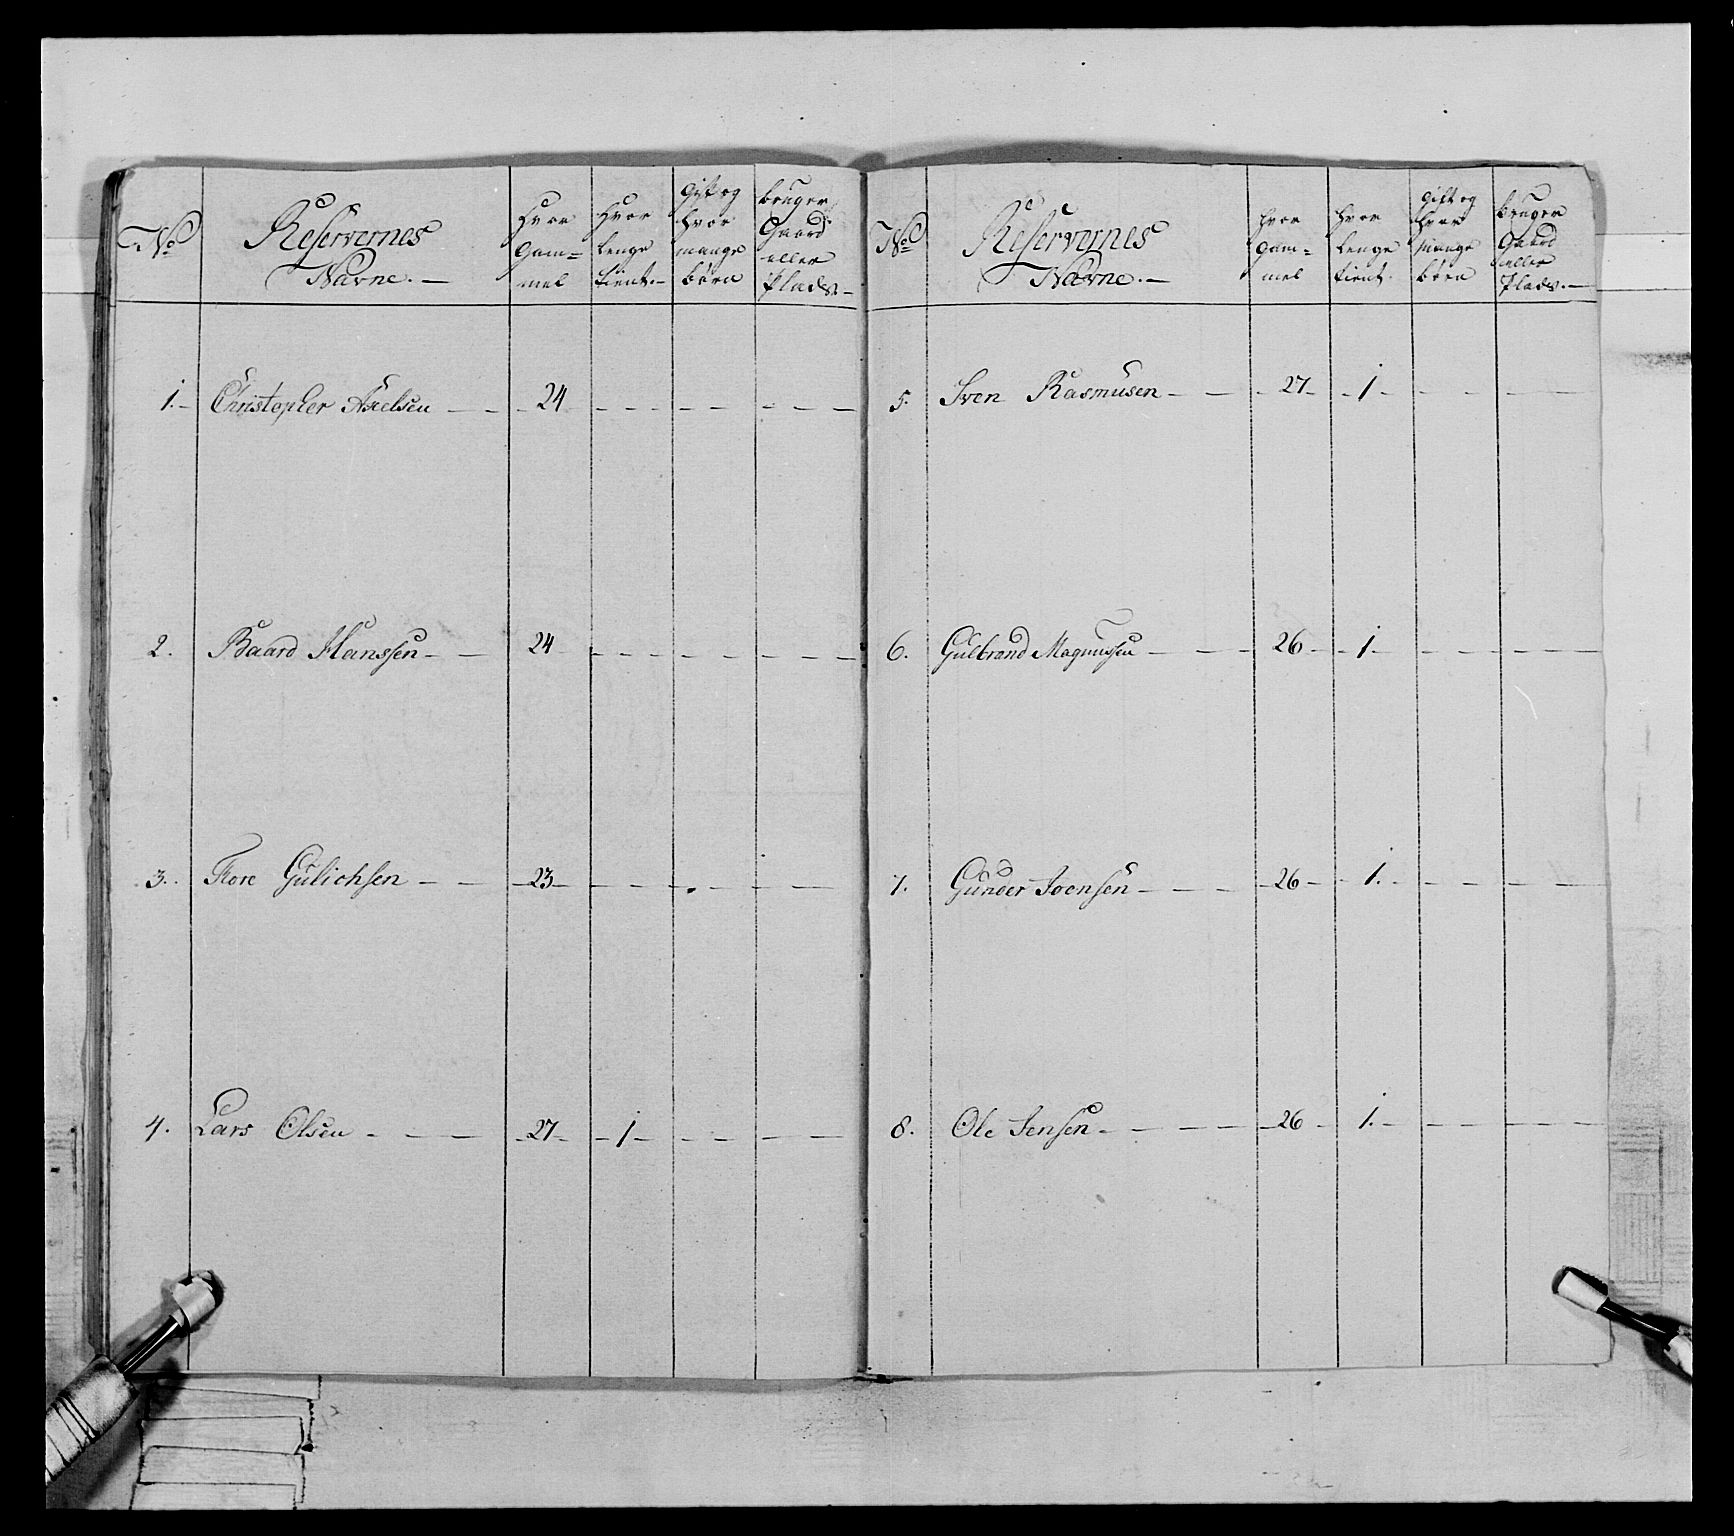 No
Reservernes
Navne.
Hvor
Gam=
mel
Hvor
lenge
tient.
Gift og
hvor
mange
børn
bruger
Gaard
eller
Plads.
1. Christopher Axelsen 24
2. Baard Hanssen 24
3. Tore Gulichsen 23
4. Lars Olsen 27 1
No
Reservernes
Navne.
Hvor
Gam=
mel
Hvor
lenge
tient.
Gift og
hvor
mange
børn
bruger
Gaard
eller
Plads.
5. Sven Rasmusen 27 1
6. Gulbrand Magnussen 26 1.
7. Gunder Joensen 26 1.
8. Ole Jensen 26 1.